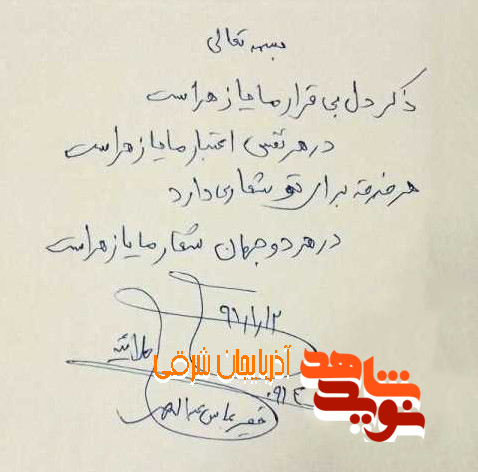 بسمه تعالی
ذکر دل بی قرار ما یا زهراست
در هر نفسی اعتبار ما یا زهراست
هر فرقه برای تو شعاری دارد
در هر دو جهان شعار ما یا زهراست
۹۱/۱/۱۲
آذربایجان شرقی
شاهد
نوید